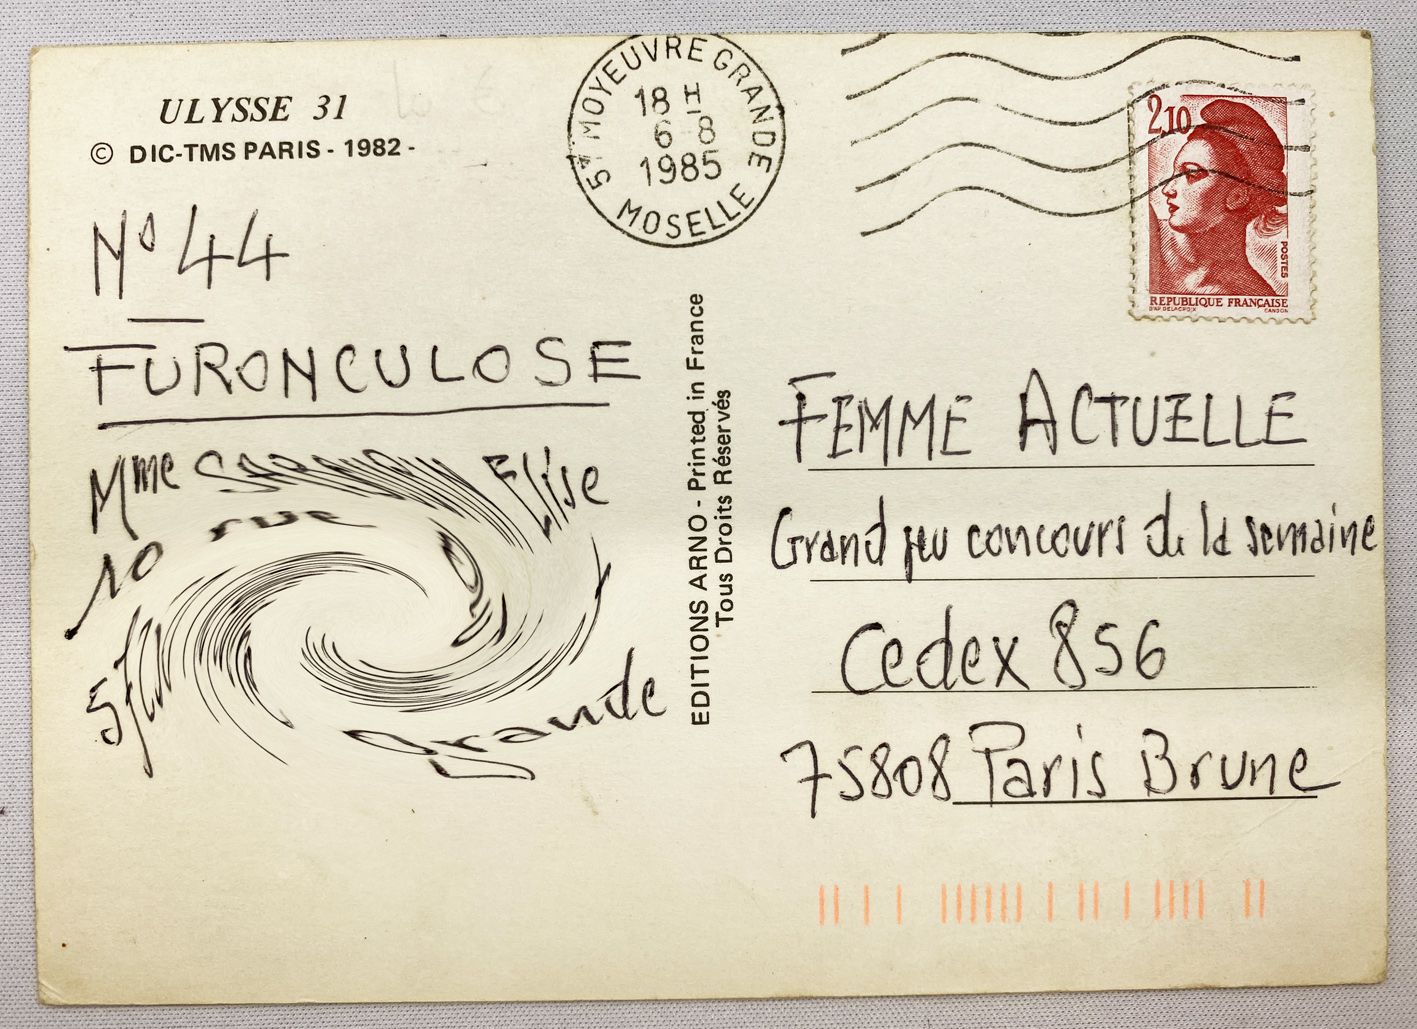 ULYSSE 31
© DIC-TMS PARIS - 1982 -
57 MOYEUVRE GRANDE
18 H
6-8
1985
MOSELLE
2,10
POSTES
REPUBLIQUE FRANÇAISE
D'AP. DELACROIX GANDON
N° 44
FURONCULOSE
Mme Elise
10 rue
57
Grande
EDITIONS ARNO - Printed in France
Tous Droits Réservés
FEMME ACTUELLE
Grand jeu concours de la semaine
Cedex 856
75808 Paris Brune